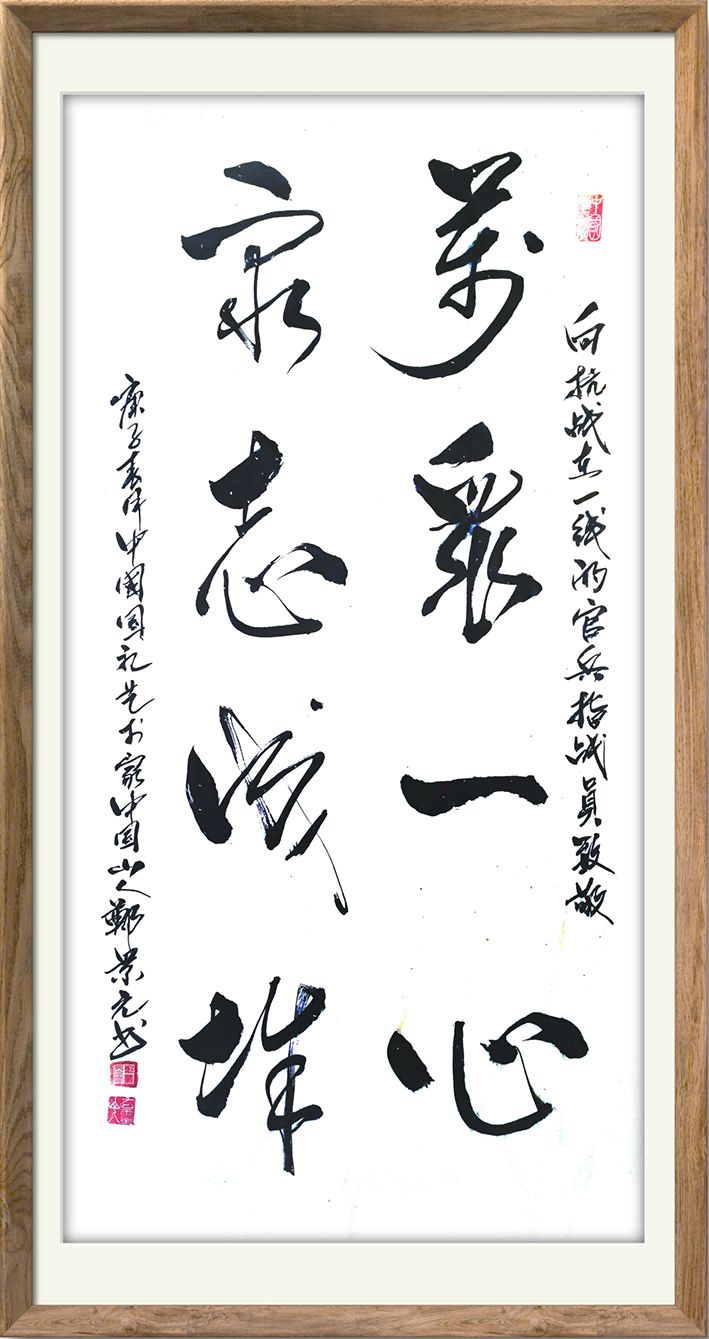 向抗战在一线的官兵指战員致敬
萬衆一心
衆志成城
庚子春中國国礼艺术家中国山人鄭景元书